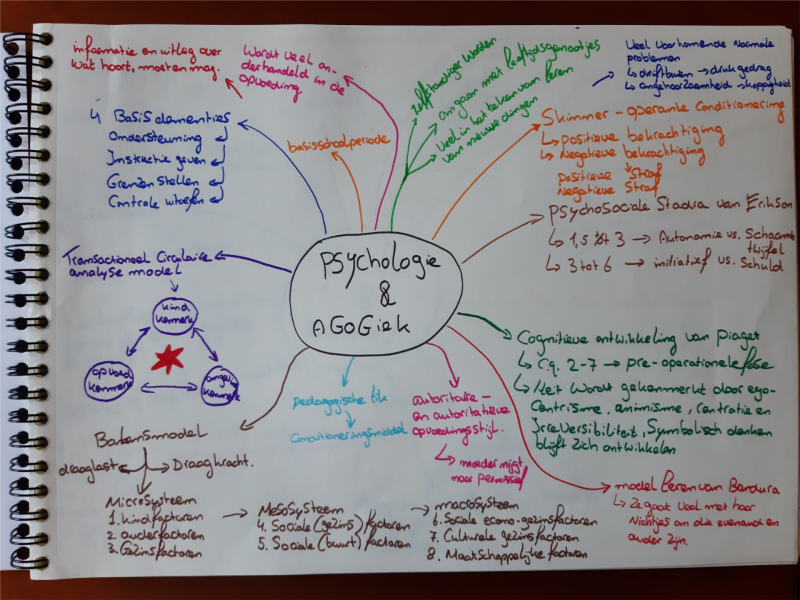 informatie en uitleg over
wat hoort, moet en mag.
Wordt veel on-
derhandeld in de
opvoeding
zelfstandiger worden
omgaan met leeftijdsgenootjes
veel in het teken van leren
van nieuwe dingen
Veel voorkomende normale
problemen
↳ driftbuien → druk gedrag
↳ ongehoorzaamheid → koppigheid
4 Basis elementies
Ondersteuning
Instructie geven
Grenzen Stellen
Controle uitoefen
basisschoolperiode
Skinner - operante Conditionering
↳ positieve bekrachtiging
↳ Negatieve bekrachtiging
positieve Straf
Negatieve Straf
PSychoSociale Stadia van Erikson
↳ 1,5 tot 3 → Autonomie vs. Schaamte
twijfel
↳ 3 tot 6 → initiatief vs. Schuld
Transactioneel Circulaire
analyse model
kind
kenmerk
opvoed
kenmerk
omgeving
kenmerk
PSychologie
&
AGOGiek
Cognitieve ontwikkeling van Piaget
↳ 2-7 → pre-operationele fase
↳ Het wordt gekenmerkt door ego-
centrisme, animisme, centratie en
Irreversibiliteit, Symbolisch denken
blijft zich ontwikkelen
Pedagogische tik
Conditioneringsmiddel
autoritaire-
en autoritatieve
opvoedingsstijl.
↳ moeder nijgt
naar permissief
Balansmodel
draaglast
Draagkracht.
MicroSysteem
1. kindfactoren
2. ouderfactoren
3. Gezinsfactoren
→ MesoSysteem
4. Sociale (gezins) factoren
5. Sociale (buurt) factoren
→ macroSysteem
6. Sociale econo-gezinsfactoren
7. Culturele gezinsfactoren
8. Maatschappelijke factoren
model leren van Bandura
↳ Ze gaat veel met haar
Nichtjes om die even oud en
ouder zijn.